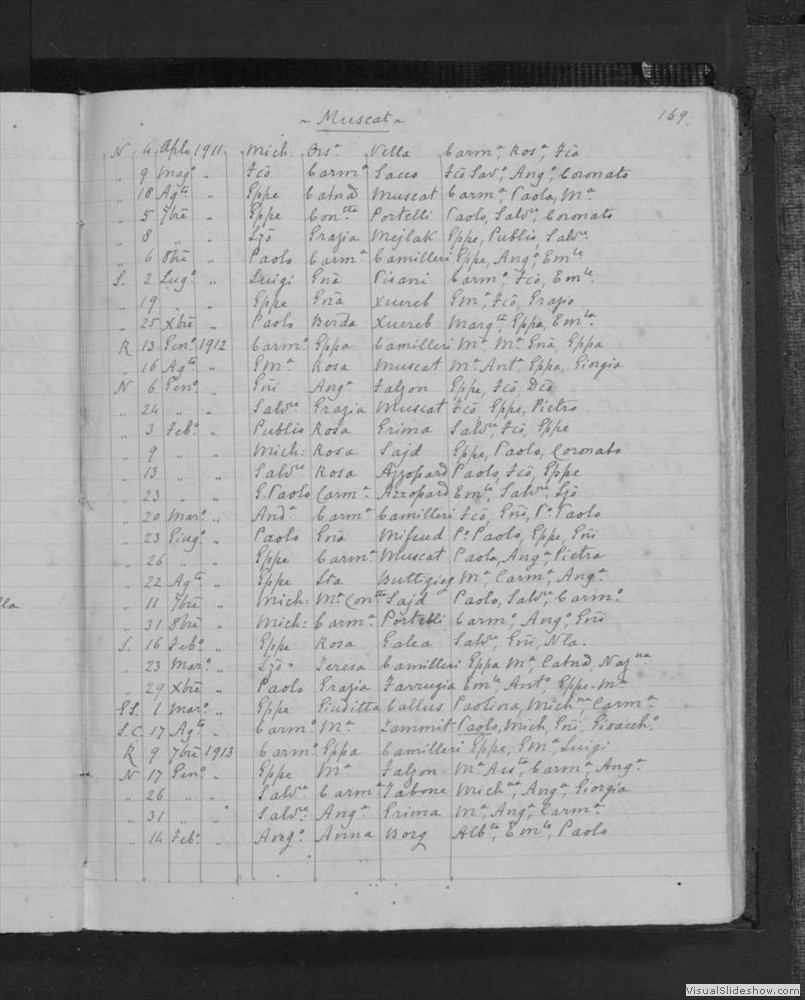 ~ Muscat ~ 169.
N 4 Aple 1911 Mich: Ors.a Vella Carm.a, Ros.a, Fcō
" 9 Mag.o " Fcō Carm.a Sacco Fcō Sav.o, Ang.o, Coronato
" 18 Ag.to " Gppe Catnd Muscat Carm.a, Paola, M.a
" 5 7bre " Gppe Con.tta Portelli Paolo, Salv.re, Coronato
" 8 " " Grazia Mejlak Gppe, Publio, Salv.re
" 6 8bre " Paolo Carm.a Camilleri Gppe, Ang.o, Em.le
S. 2 Lug.o " Luigi Gnā Pisani Carm.o, Fcō, Em.le
" 19 " " Gppe Gnā Xuereb Em.o, Fcō, Grazio
" 25 Xbre " Paolo Berda Xuereb Marg.ta, Gppa, Em.la
R 13 Gen.o 1912 Carm.o Gppa Camilleri M.a, M.a Gnā, Gppa
" 16 Ag.to " Em.a Rosa Muscat M.a Ant.a Gppa, Giorgia
N 6 Gen.o " Gnī Ang.a Falzon Gppe, Fcō
" 24 " " Salv.re Grazia Muscat Fcō, Gppe, Pietro
" 3 Feb.o " Publio Rosa Grima Salv.re, Fcō, Gppe
" 9 " " Mich: Rosa Sajd Gppe, Paolo, Coronato
" 13 " " Salv.re Rosa Azzopard Paolo, Fcō, Gppe
" 23 " " G. Paolo Carm.a Azzopard Em.le, Salv.re
" 20 Mar.o " And.a Carm.a Camilleri Fcō, Gnī, P.o Paolo
" 23 Giug.o " Paolo Gnā Mifsud P.o Paolo, Gppe, Gnī
" 26 " " Gppe Carm.a Muscat Paola, Ang.a, Pietra
" 22 Ag.to " Gppe Buttigieg M.a, Carm.a, Ang.a
" 11 7bre " Mich: M.a Con.tta Sajd Paolo, Salv.re, Carm.o
" 31 8bre " Mich: Carm.a Portelli Carm.o, Ang.o, Gnī
S. 16 Feb.o " Gppe Rosa Galea Salv.re, Gnī, Nla.
" 23 Mar.o " Teresa Camilleri Gppa M.a, Catnd,
" 29 Xbre " Paolo Grazia Farrugia Em.le, Ant.o, Gppe M.a
SS. 1 Mar.o " Gppe Giuditta Callus Paolina, Mich.na, Carm.a
S.C. 17 Ag.to " Carm.o M.a Zammit Paolo, Mich, Gnī, Gioacch.o
R 9 7bre 1913 Carm.o Gppa Camilleri Gppe, Em.a, Luigi
N 17 Gen.o " Gppe M.a Falzon M.a Ass.ta, Carm.a, Ang.a
" 26 " " Salv.re Carm.a Tabone Mich.na, Ang.a, Giorgia
" 31 " " Salv.re Ang.a Grima M.a, Ang.a, Carm.a
" 14 Feb.o " Ang.o Anna Borg Alb.to, Em.le, Paolo
VisualSlideshow.com